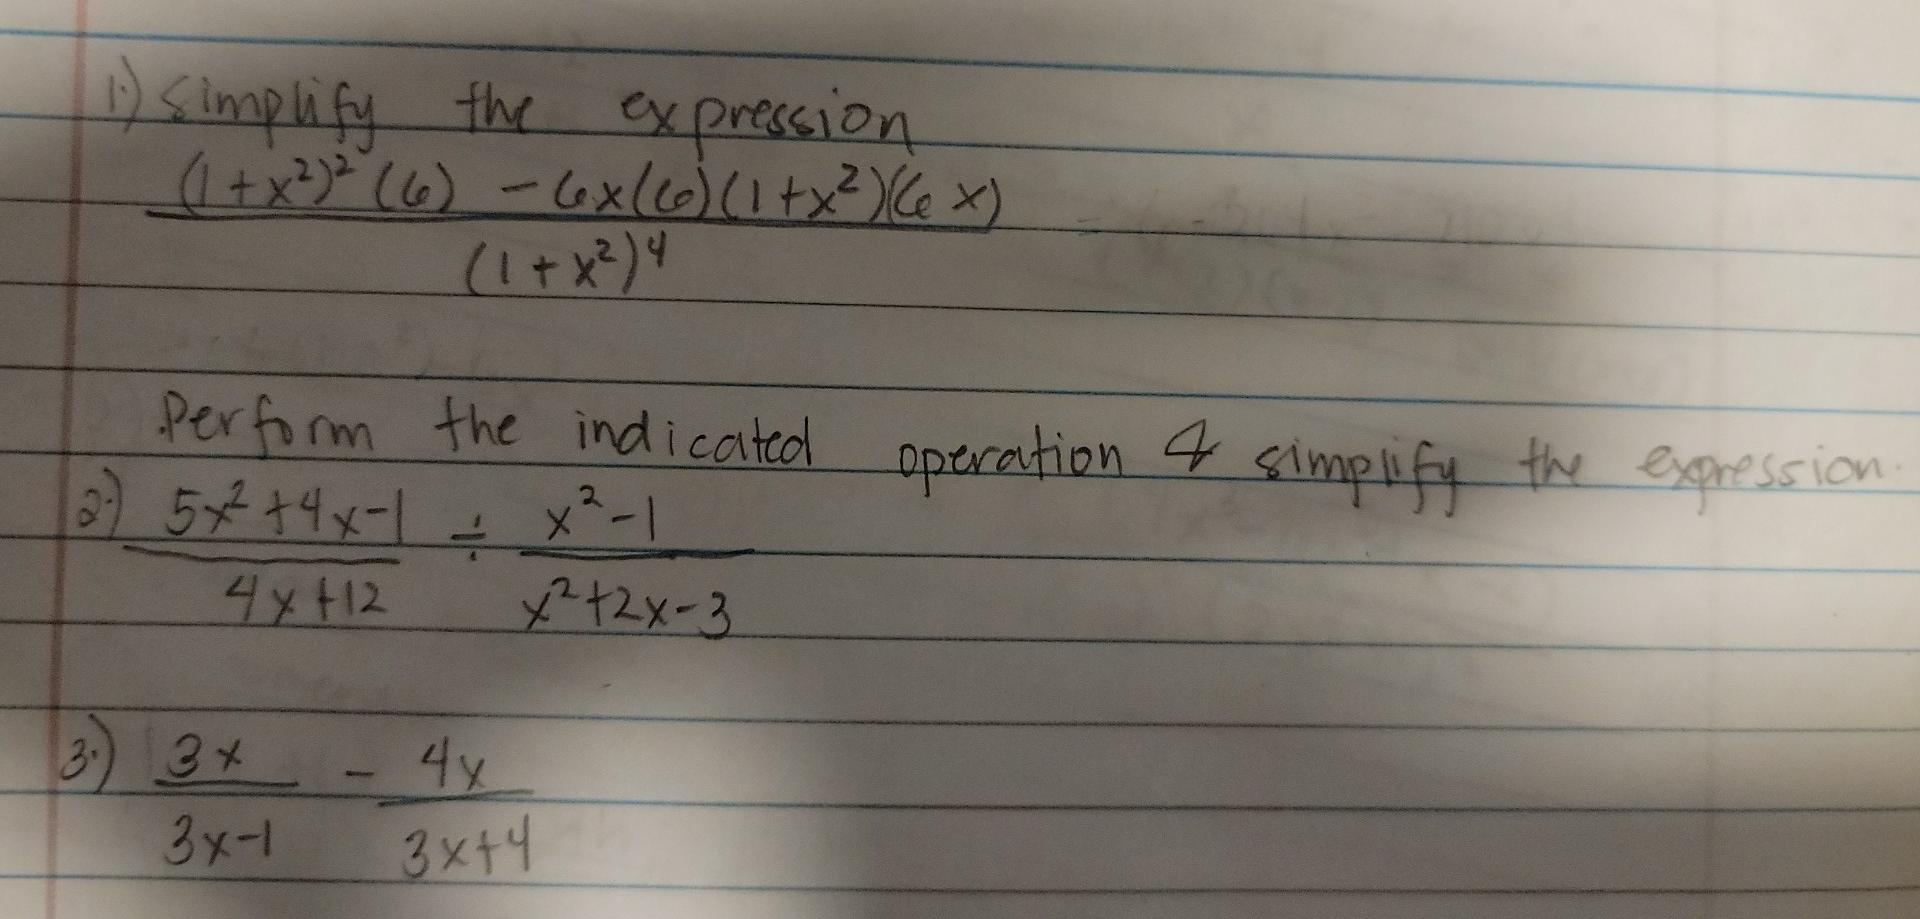 1.) Simplify the expression
(1+x²)² (6) - 6x(6)(1+x²)(6x)
(1+x²)⁴
Perform the indicated operation & simplify the expression.
2.) 5x²+4x-1 ÷ x²-1
4x+12 x²+2x-3
3.) 3x - 4x
3x-1 3x+4